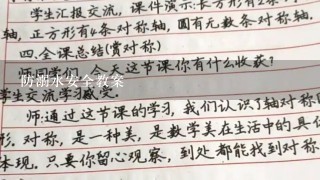 学生汇报交流，课件演示：长方形有2条
轴，正方形有4条对称轴，圆有无数条对称轴.
四.全课总结(赏对称)
师：同学们，今天这节课你有什么收获？
防溺水安全教案
学生交流学习感受.
师：通过这节课的学习，我们认识了轴对称
形.对称，是一种美，是数学美在生活中的具
体现.只要你留心观察，到处都能找到对称